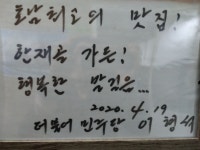 호남최고의 맛집!
한재골 가든!
행복한 밥집은...
2020. 4. 19
더불어 민주당 이형석